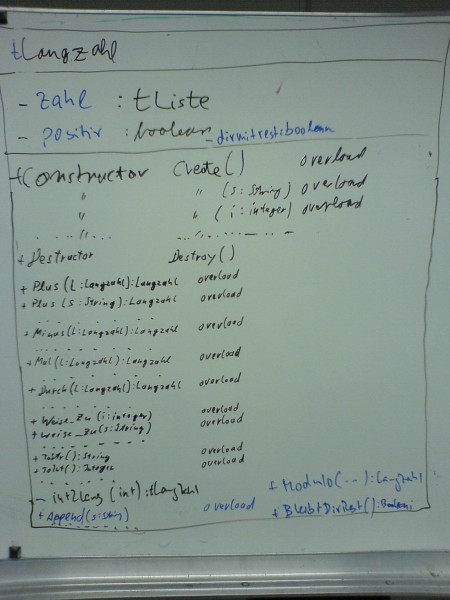 tLangzahl
- Zahl : tListe
- positiv : boolean - divmitrest:boolean
+ Constructor Create() overload
" " (s: String) overload
" " (i: integer) overload
+ Destructor Destroy()
+ Plus(L:Langzahl):Langzahl overload
+ Plus(s:String):Langzahl overload
+ Minus(L:Langzahl):Langzahl overload
+ Mal(L:Langzahl):Langzahl overload
+ Durch(L:Langzahl):Langzahl overload
+ Weise_Zu(i:integer) overload
+ Weise_Zu(s:String) overload
+ ToStr():String overload
+ ToInt():Integer overload
- int2lang(int):tLangzahl + Modulo(...):Langzahl
+ Append(s:String) overload + BleibtDivRest():Boolean